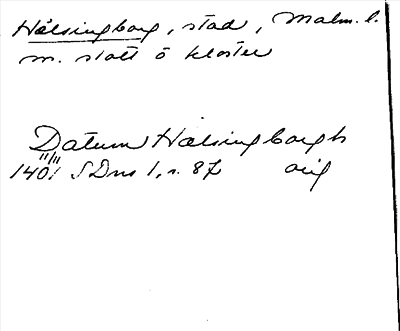 Hälsingborg, stad, Malm. l.
m. slott o kloster
Datum Hælsingborgh
11/11
1401 SDns 1, s. 87 orig